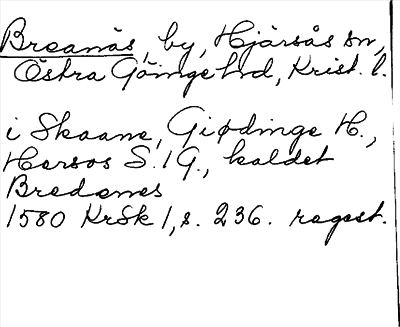 Breanäs, by, Hjärsås sn,
Östra Göinge hd, Krist. l.
i Skaane, Giødinge H.,
Hersos S. 1 G., kaldet
Bredenes
1580 KrSk 1, s. 236. regest.